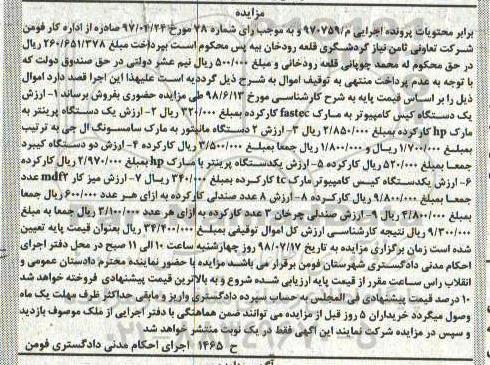 مزایده
برابر محتویات پرونده اجرایی م/۹۷۰۷۵۹ و به موجب رای شماره ۷۸ مورخ ۹۷/۰۴/۲۴ صادره از اداره کار فومن
شرکت تعاونی ثامن نیاز گردشگری قلعه رودخان بیه پس محکوم است بپرداخت مبلغ ۲۶۰/۶۵۱/۳۷۸ ریال
در حق محکوم له محمد چوپانی قلعه رودخانی و مبلغ ۵۰۰/۰۰۰ ریال نیم عشر دولتی در حق صندوق دولت که
با توجه به عدم پرداخت منتهی به توقیف اموال به شرح ذیل گردیده است علیهذا این اجرا قصد دارد اموال
ذیل را بر اساس قیمت پایه به شرح کارشناسی مورخ ۹۸/۶/۱۳ طی مزایده حضوری بفروش برساند ۱- ارزش
یک دستگاه کیس کامپیوتر به مارک fastec کارکرده بمبلغ ۳۲۰/۰۰۰ ریال ۲- ارزش یک دستگاه پرینتر به
مارک hp کارکرده بمبلغ ۲/۸۵۰/۰۰۰ ریال ۳- ارزش ۲ دستگاه مانیتور به مارک سامسونگ ال جی به ترتیب
بمبلغ ۱/۷۰۰/۰۰۰ ریال و ۱/۸۰۰/۰۰۰ ریال جمعا بمبلغ ۳/۵۰۰/۰۰۰ ریال کارکرده ۴- ارزش دو دستگاه کیبرد
جمعا بمبلغ ۵۲۰/۰۰۰ ریال کارکرده ۵- ارزش یکدستگاه پرینتر با مارک hp بمبلغ ۲/۹۷۰/۰۰۰ ریال کارکرده
۶- ارزش یکدستگاه کیس کامپیوتر مارک tc کارکرده بمبلغ ۳۴۰/۰۰۰ ریال ۷- ارزش میز کار mdf۲ عدد
جمعا بمبلغ ۹/۸۰۰/۰۰۰ ریال کارکرده ۸- ارزش ۸ عدد صندلی کارکرده به ازای هر عدد ۶۰۰/۰۰۰ ریال جمعا
بمبلغ ۴/۸۰۰/۰۰۰ ریال ۹- ارزش صندلی چرخان ۳ عدد کارکرده به ازای هر عدد ۳/۱۰۰/۰۰۰ ریال جمعا به مبلغ
۹/۳۰۰/۰۰۰ ریال نتیجه کارشناسی ارزش کل اموال توقیفی بمبلغ ۳۴/۴۰۰/۰۰۰ ریال بعنوان قیمت پایه تعیین
شده است زمان برگزاری مزایده به تاریخ ۹۸/۰۷/۱۷ روز چهارشنبه ساعت ۱۰ الی ۱۱ صبح در محل دفتر اجرای
احکام مدنی دادگستری شهرستان فومن برقرار می باشد مزایده با حضور نماینده محترم دادستان عمومی و
انقلاب راس ساعت مقرر از قیمت پایه ارزیابی شده شروع و به بالاترین قیمت پیشنهادی فروخته خواهد شد
۱۰ درصد قیمت پیشنهادی فی المجلس به حساب سپرده دادگستری واریز و مابقی حداکثر ظرف مهلت یک ماه
وصول میگردد خریداران ۵ روز قبل از مزایده می توانند ضمن هماهنگی با دفتر اجرایی از ملک موصوف بازدید
و سپس در مزایده شرکت نمایند این آگهی فقط در یک نوبت منتشر خواهد شد
ح ۱۴۶۵ اجرای احکام مدنی دادگستری فومن